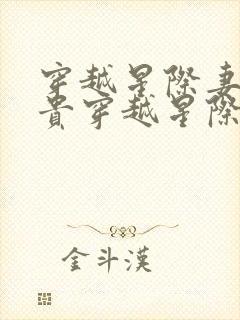 穿越星際妻
貴穿越星際
金斗漢